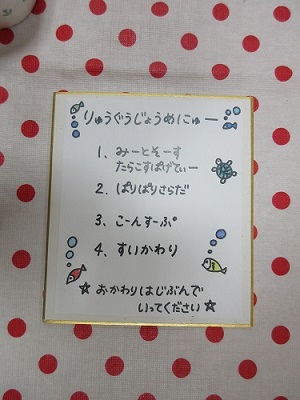 りゅうぐうじょうめにゅー
1、みーとそーす
たらこすぱげてぃー
2、ぱりぱりさらだ
3、こーんすーぷ
4、すいかわり
☆おかわりはじぶんで
いってください☆